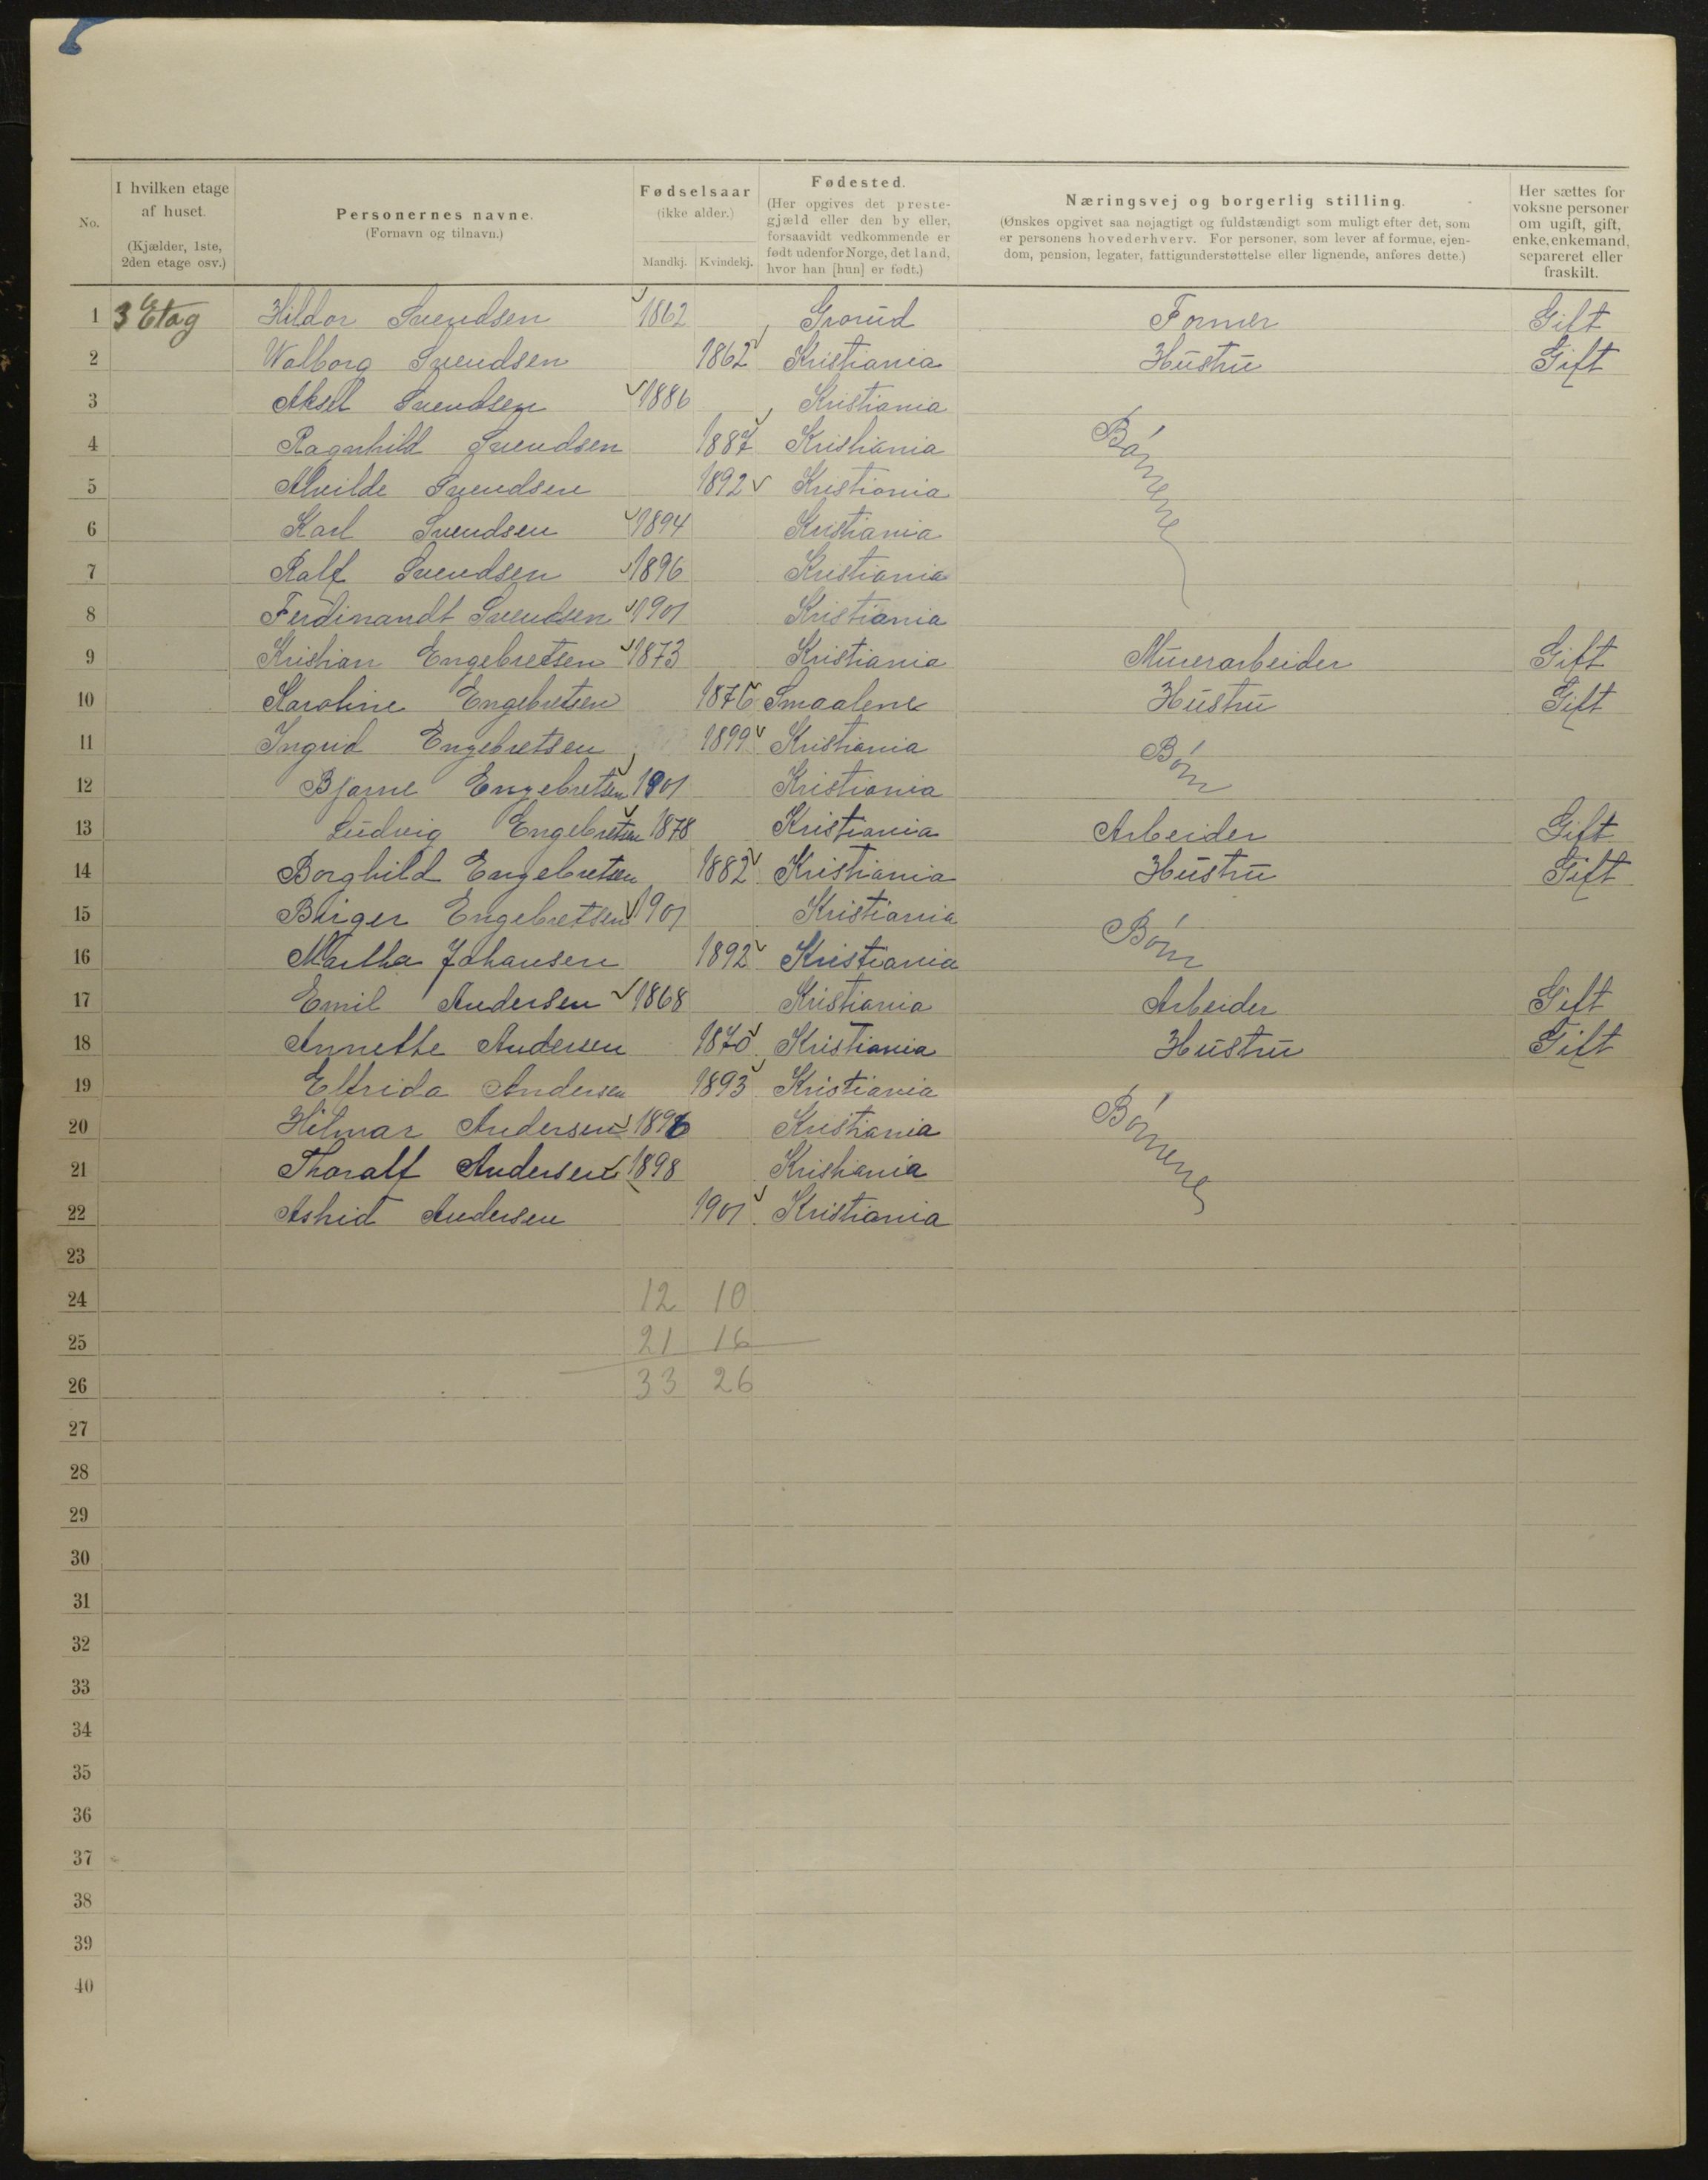 No. I hvilken etage af huset. (Kjælder, 1ste, 2den etage osv.) Personernes navne. (Fornavn og tilnavn.) Fødselsaar (ikke alder.) Mandkj. Kvindekj. Fødested. (Her opgives det prestegjæld eller den by eller, forsaavidt vedkommende er født udenfor Norge, det land, hvor han [hun] er født.) Næringsvej og borgerlig stilling. (Ønskes opgivet saa nøjagtigt og fuldstændigt som muligt efter det, som er personens hovederhverv. For personer, som lever af formue, ejendom, pension, legater, fattigunderstøttelse eller lignende, anføres dette.) Her sættes for voksne personer om ugift, gift, enke, enkemand, separeret eller fraskilt.
1 3 Etag Hildor Svendsen 1862 Grorud Former Gift
2 Walborg Svendsen 1862 Kristiania Hustru Gift
3 Aksel Svendsen 1886 Kristiania
4 Ragnhild Svendsen 1887 Kristiania Børnene
5 Alvilde Svendsen 1892 Kristiania
6 Karl Svendsen 1894 Kristiania
7 Ralf Svendsen 1896 Kristiania
8 Ferdinandt Svendsen 1901 Kristiania
9 Kristian Engebretsen 1873 Kristiania Murerarbeider Gift
10 Karoline Engebretsen 1876 Smaalene Hustru Gift
11 Ingrid Engebretsen 1899 Kristiania Børn
12 Bjarne Engebretsen 1901 Kristiania
13 Ludvig Engebretsen 1878 Kristiania Arbeider Gift
14 Borghild Engebretsen 1882 Kristiania Hustru Gift
15 Birger Engebretsen 1901 Kristiania Børn
16 Martha Johansen 1892 Kristiania
17 Emil Andersen 1868 Kristiania Arbeider Gift
18 Annette Andersen 1870 Kristiania Hustru Gift
19 Elfrida Andersen 1893 Kristiania Børnene
20 Hilmar Andersen 1896 Kristiania
21 Thoralf Andersen 1898 Kristiania
22 Astrid Andersen 1901 Kristiania
23
24 12 10
25 21 16
26 33 26
27
28
29
30
31
32
33
34
35
36
37
38
39
40